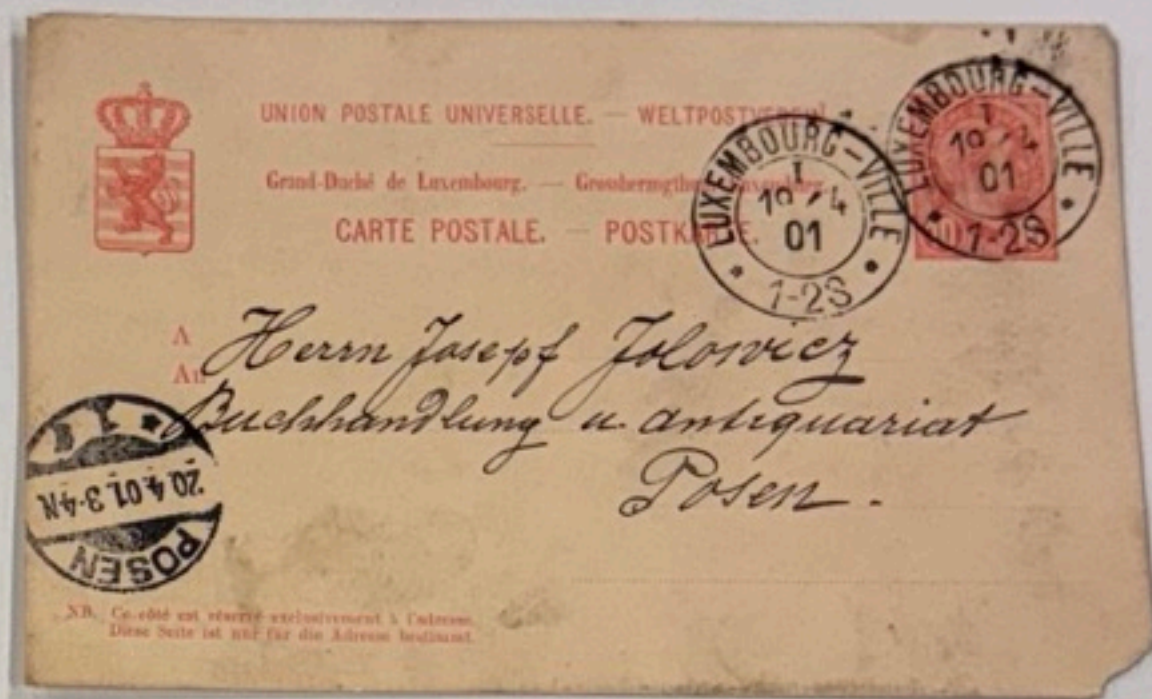 UNION POSTALE UNIVERSELLE. — WELTPOSTVEREIN
Grand-Duché de Luxembourg. — Grossherzogthum Luxemburg.
CARTE POSTALE. — POSTKARTE.
LUXEMBOURG-VILLE
I
19 4
01
1-2S
LUXEMBOURG-VILLE
I
19 4
01
1-2S
10
A
An
Herrn Josepf Jolowicz
Buchhandlung u. Antiquariat
Posen.
POSEN
20.4.01.3-4N.
NB. Ce côté est réservé exclusivement à l'adresse.
Diese Seite ist nur für die Adresse bestimmt.